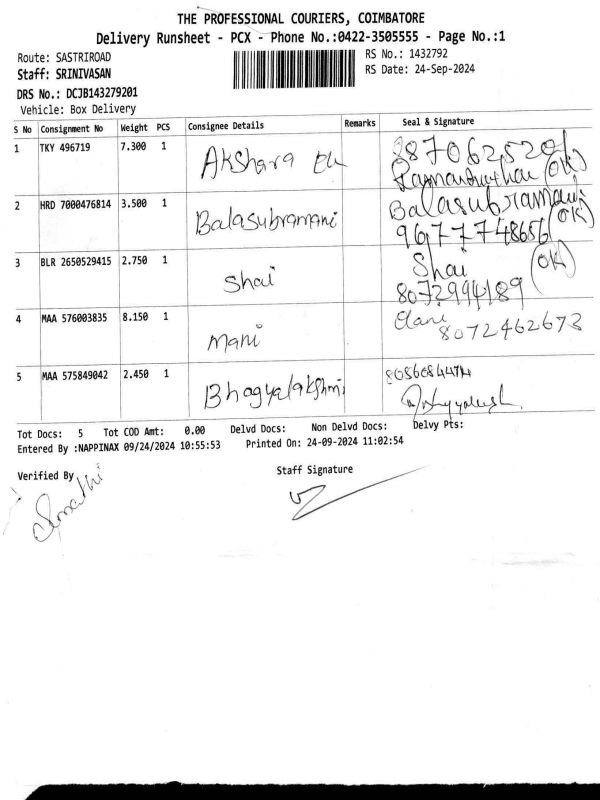 THE PROFESSIONAL COURIERS, COIMBATORE
Delivery Runsheet - PCX - Phone No.:0422-3505555 - Page No.:1
Route: SASTRIROAD
RS No.: 1432792
Staff: SRINIVASAN
RS Date: 24-Sep-2024
DRS No.: DCJB143279201
Vehicle: Box Delivery
S No Consignment No Weight PCS Consignee Details Remarks Seal & Signature
1 TKY 496719 7.300 1 Akshara
(OK)
2 HRD 7000476814 3.500 1 Balasubramani Balasubramani
9677748656 (OK)
3 BLR 2650529415 2.750 1 Shai Shai (OK)
8072994189
4 MAA 576003835 8.150 1 Mani
8072462673
5 MAA 575849042 2.450 1 Bhagyalakshmi
Tot Docs: 5 Tot COD Amt: 0.00 Delvd Docs: Non Delvd Docs: Delvy Pts:
Entered By :NAPPINAX 09/24/2024 10:55:53 Printed On: 24-09-2024 11:02:54
Verified By
Staff Signature